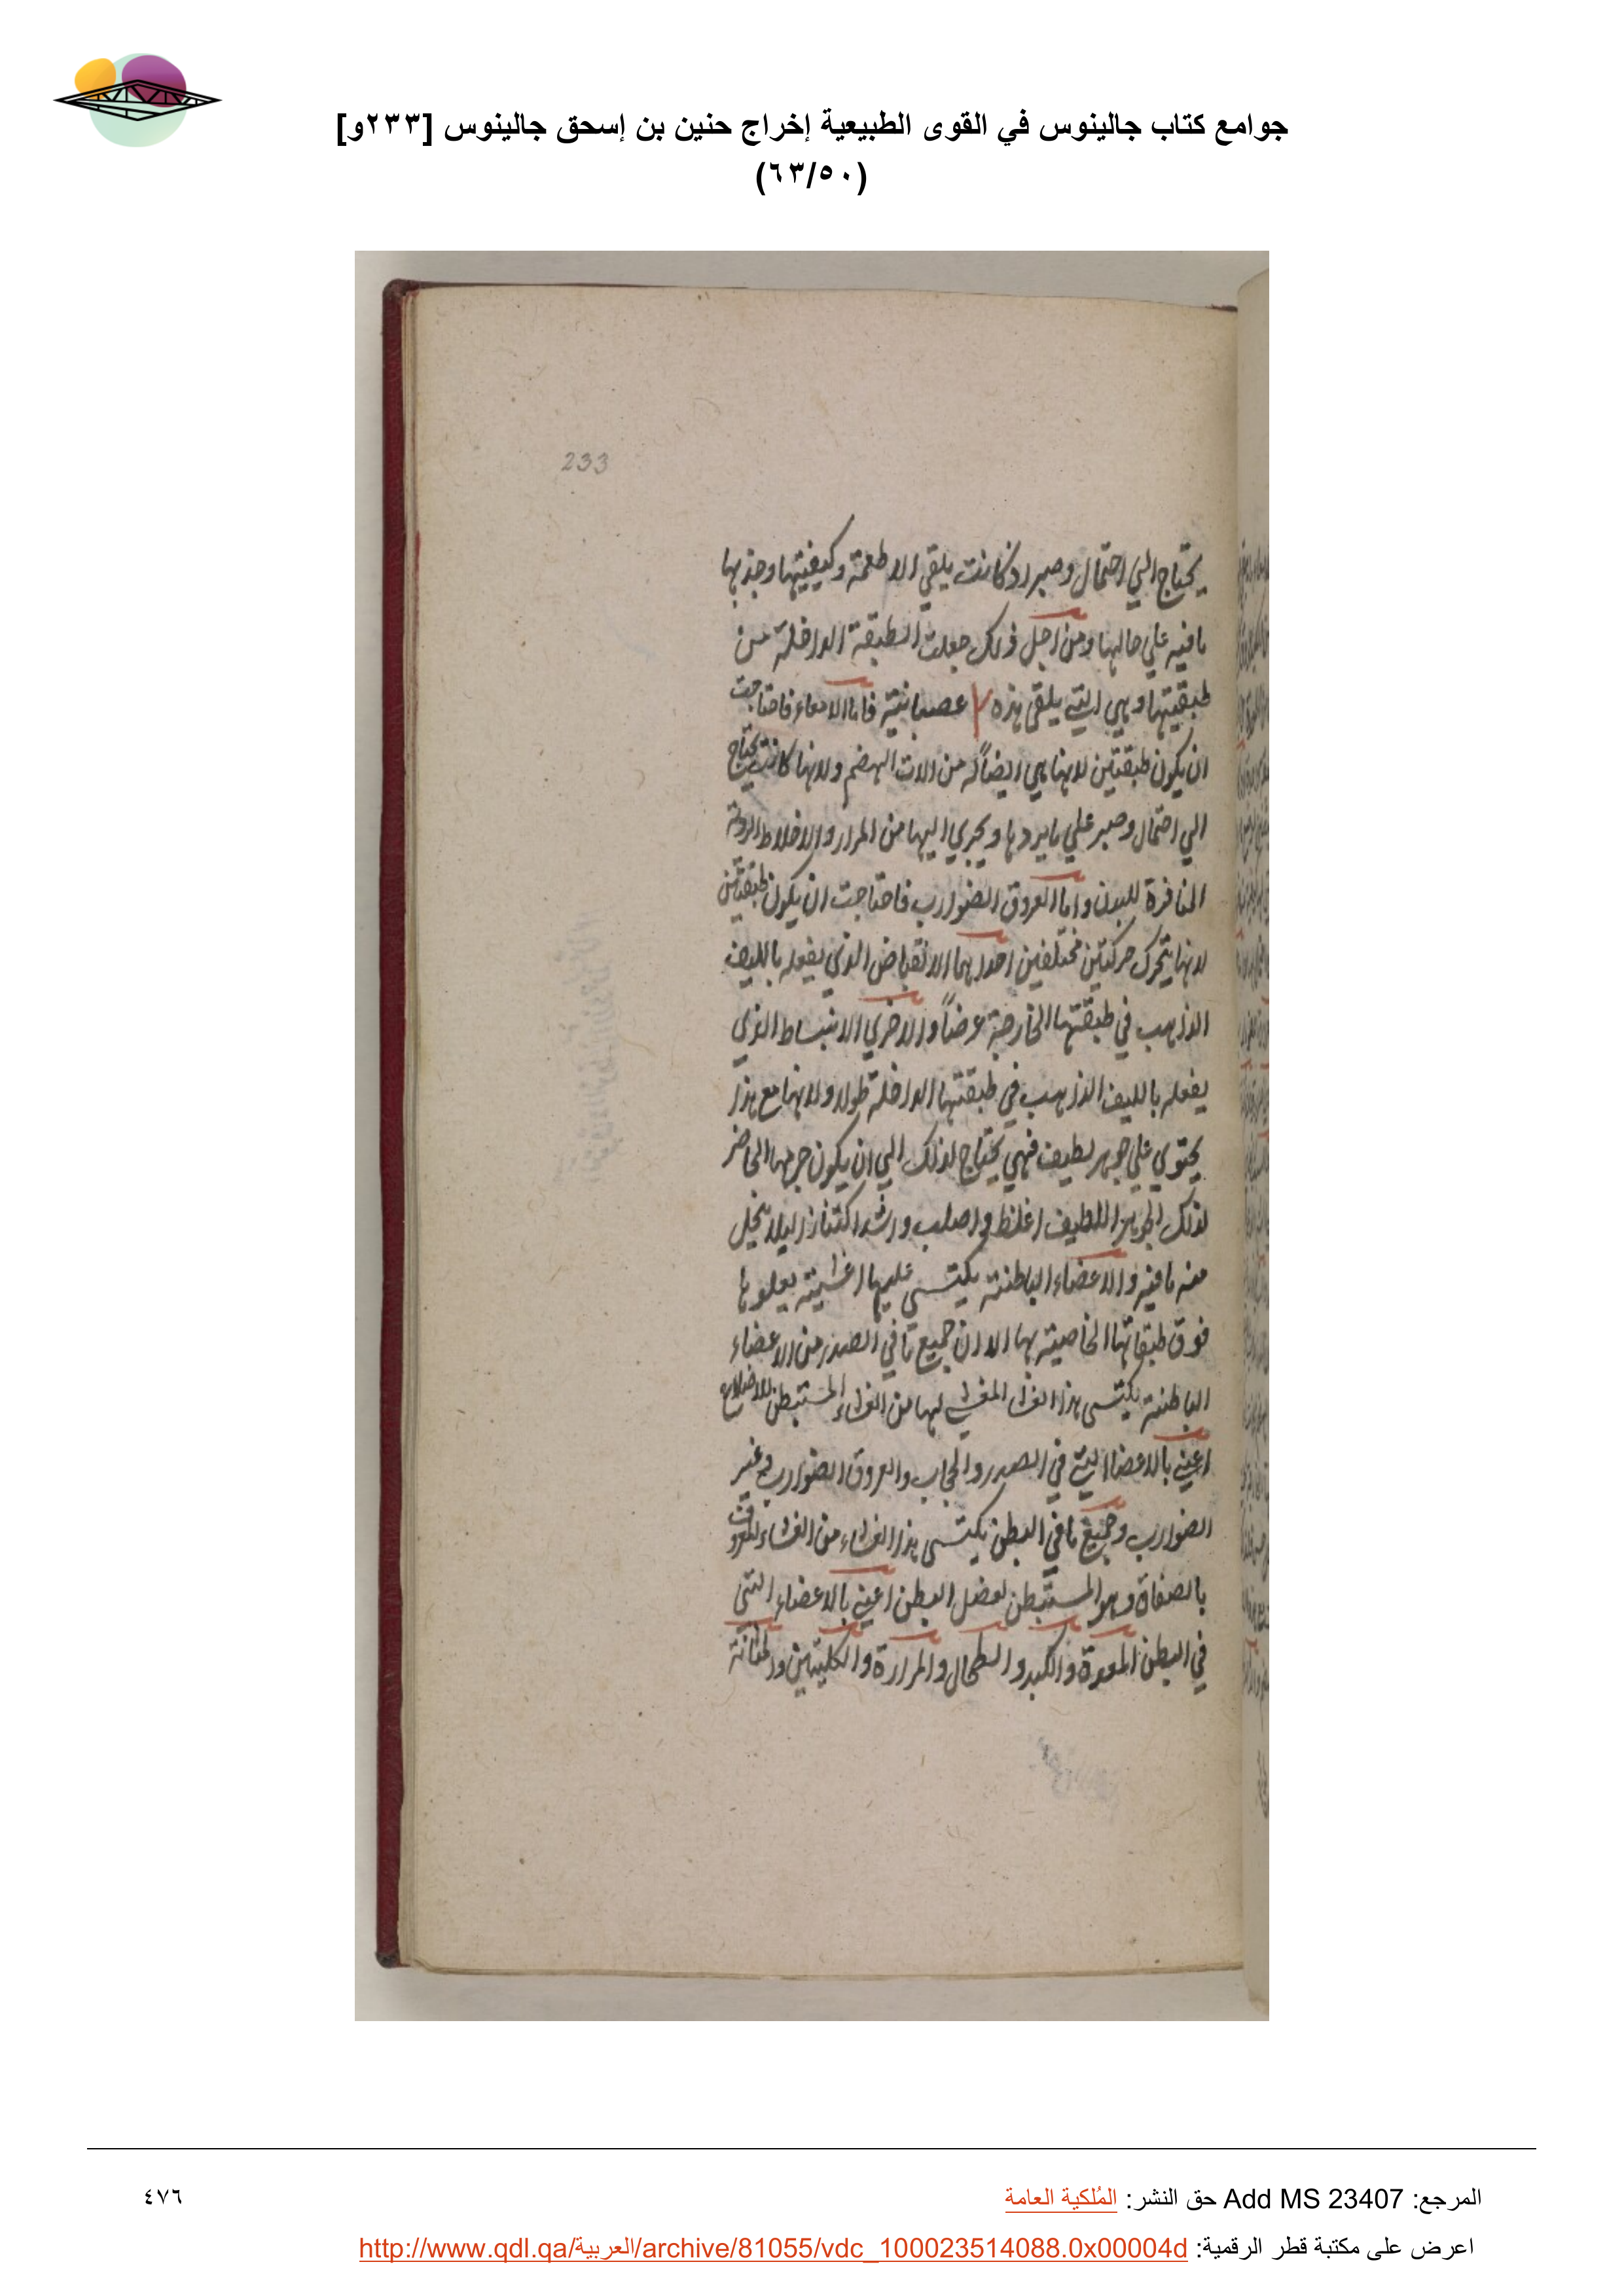 جوامع كتاب جالينوس في القوى الطبيعية إخراج حنين بن إسحق جالينوس [٢٣٣و]
(٦٣/٥٠)
233
يحتاج الي احتمال وصبر اذ كانت يلقي الاطعمة وكيفيتها وجذبها
باقية علي حالها ومن اجل ذلك جعلت الطبقة الداخلة من
طبقيتها وهي التي يلقي هذه عصبانية فاما الامعاء فاحتاجت
ان يكون طبقتين لانها هي ايضاً من الات الهضم ولانها كانت يحتاج
الي احتمال وصبر علي ما يردها ويجري اليها من المرار والاخلاط الردئة
المنافرة للبدن واما العروق الضوارب فاحتاجت ان يكون طبقتين
لانها يتحرك حركتين مختلفين احداهما الانقباض الذي يفعله بالليف
الذاهب في طبقتها الخارجة عرضاً والاخري الانبساط الذي
يفعله بالليف الذاهب في طبقتها الداخلة طولا ولانها مع هذا
يحتوي علي جوهر لطيف فهي يحتاج لذلك الي ان يكون جرمها الحاضر
لذلك الجوهر اللطيف اغلظ واصلب واشد اكتنازا ليلا ينحل
منه ما فيه والاعضاء الباطنة يكتسي عليها اغشية يعلوها
فوق طبقاتها الخاصية بها الا ان جميع ما في الصدر من الاعضاء
الباطنة يكتسي هذا الغشاء المغشي لها من الغشاء المستبطن للاضلاع
اعني بالاعضا التي في الصدر والحجاب والعروق الضوارب وغير
الضوارب وجميع ما في البطن يكتسي هذا الغشاء من الغشاء المعروف
بالصفاق وهو المستبطن لعضل البطن اعني بالاعضاء التي
في البطن المعدة والكبد والطحال والمرارة والكليتين والمثانة
المرجع: Add MS 23407 حق النشر: المُلكية العامة
٤٧٦
اعرض على مكتبة قطر الرقمية: http://www.qdl.qa/العربية/archive/81055/vdc_100023514088.0x00004d